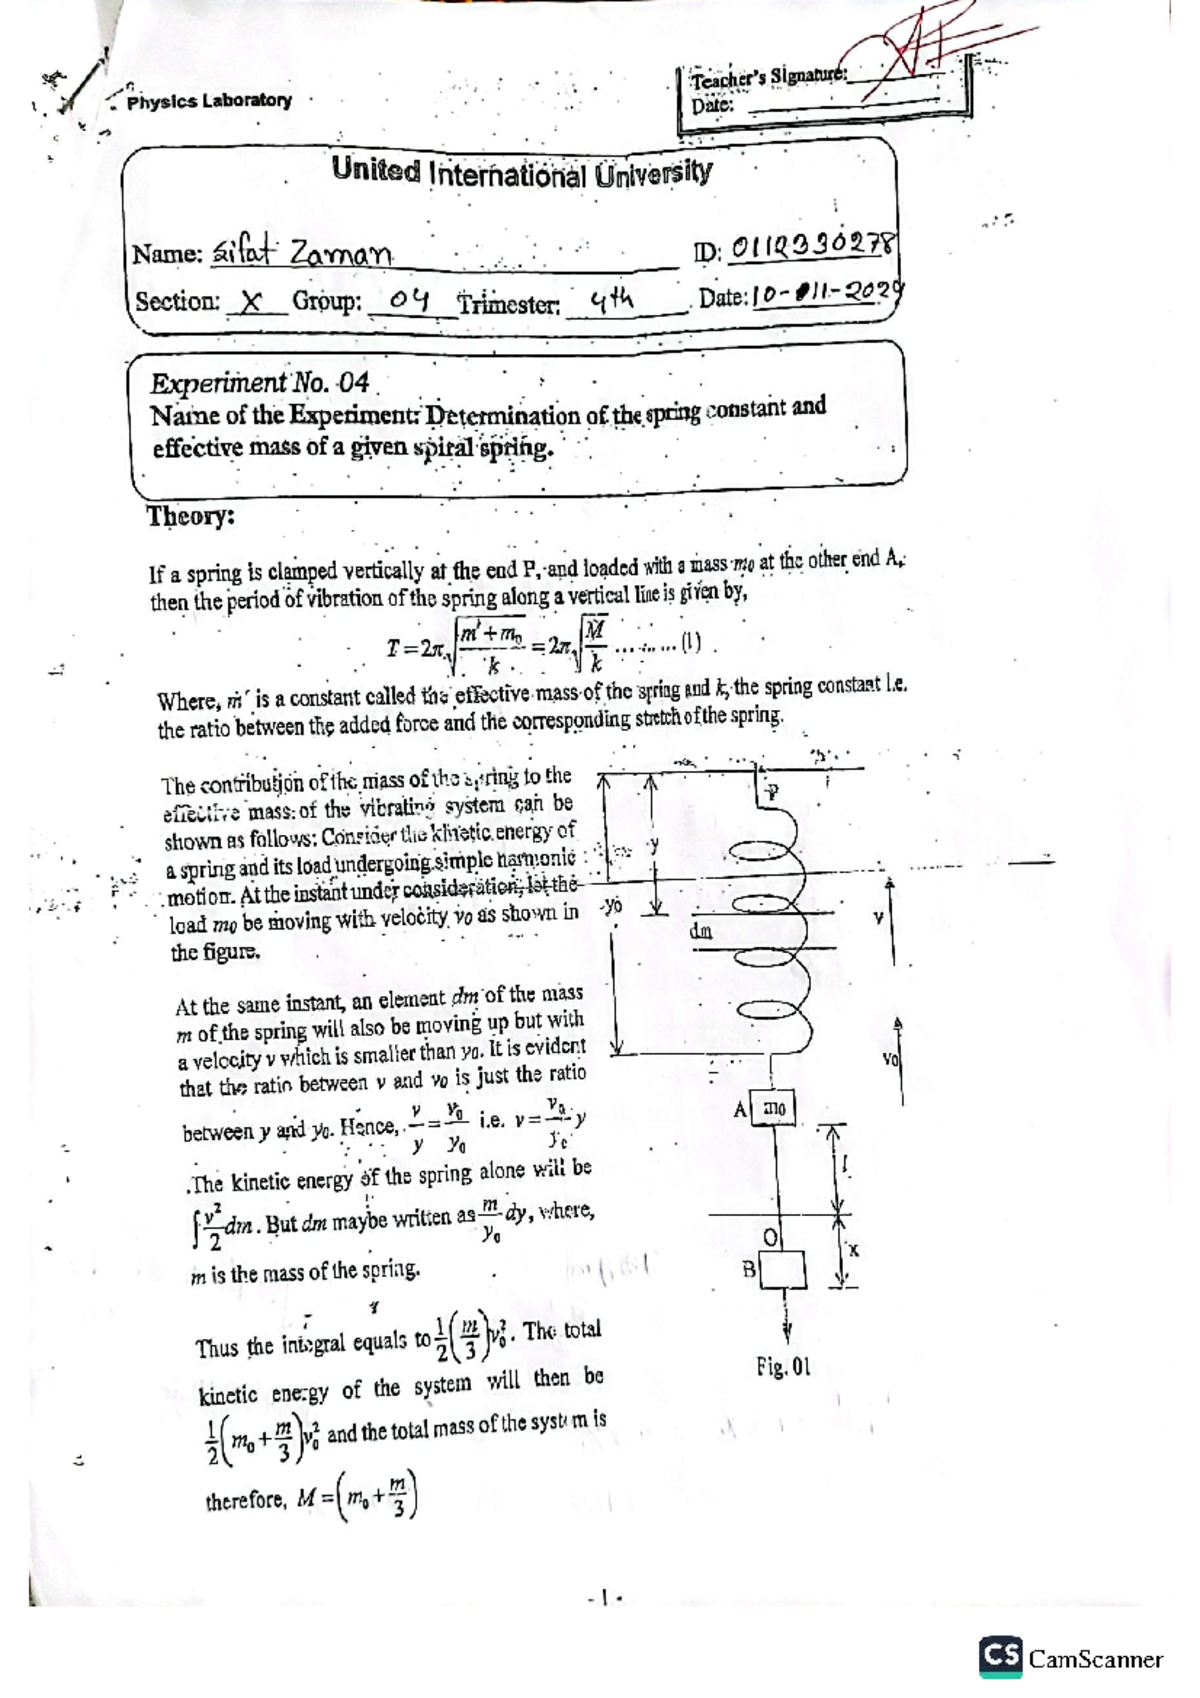 Teacher's Signature:
Physics Laboratory
Date:
United International University
Name: Sifat Zaman ID: 0112330278
Section: X Group: 04 Trimester: 4th Date: 10-11-2024
Experiment No. 04
Name of the Experiment: Determination of the spring constant and
effective mass of a given spiral spring.
Theory:
If a spring is clamped vertically at the end P, and loaded with a mass m₀ at the other end A,
then the period of vibration of the spring along a vertical line is given by,
T = 2π√((m' + m₀)/k) = 2π√(M/k) ......... (1)
Where, m' is a constant called the effective mass of the spring and k, the spring constant i.e.
the ratio between the added force and the corresponding stretch of the spring.
The contribution of the mass of the spring to the
effective mass of the vibrating system can be
shown as follows: Consider the kinetic energy of
a spring and its load undergoing simple harmonic
motion. At the instant under consideration, let the
load m₀ be moving with velocity v₀ as shown in
the figure.
At the same instant, an element dm of the mass
m of the spring will also be moving up but with
a velocity v which is smaller than v₀. It is evident
that the ratio between v and v₀ is just the ratio
between y and y₀. Hence, v/y = v₀/y₀ i.e. v = v₀/y₀ y
The kinetic energy of the spring alone will be
∫ v²/2 dm. But dm maybe written as m/y₀ dy, where,
m is the mass of the spring.
Thus the integral equals to 1/2 (m/3) v₀². The total
kinetic energy of the system will then be
1/2 (m₀ + m/3) v₀² and the total mass of the system is
therefore, M = (m₀ + m/3)
P
y
y₀
dm
v
v₀
A
m₀
l
O
x
B
Fig. 01
- 1 -
CS CamScanner